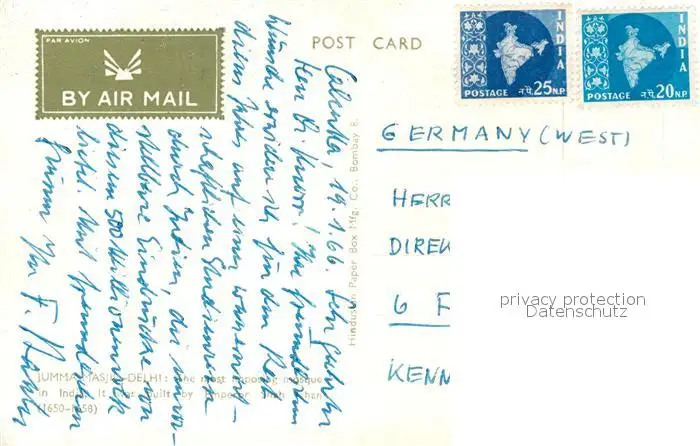 PAR AVION
BY AIR MAIL
POST CARD
INDIA
POSTAGE न.पै. 25 N.P.
INDIA
POSTAGE न.पै. 20 N.P.
Calcutta, 19.1.66. Sehr geehrter
Herr Dr. Ihre freundlichen
Wünsche erreichten mich für den Rest
dieses Jahres auf einer
schaftlichen Studienreise
durch Indien, die unvor-
stellbare Eindrücke von
diesem 500 Millionenvolk
Mit freundlichen
Grüssen Ihr F.
GERMANY (WEST)
HERR
DIREK
6 F
KENN
privacy protection
Datenschutz
Hindustan Paper Box Mfg. Co., Bombay 8.
JUMMA MASJID-DELHI: The most imposing mosque
in India. It was built by Emperor Shah Jahan
(1650-1658)